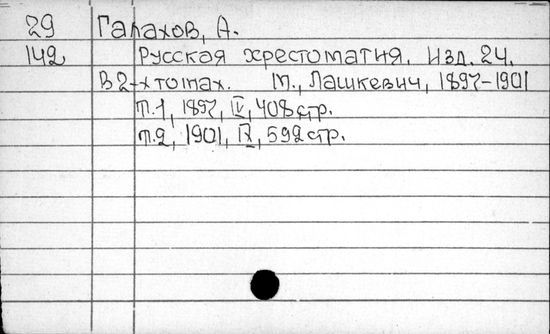 29 Галахов, А.
142 Русская хрестоматия. Изд. 24.
В 2-х томах. М., Лашкевич, 1897-1901
т.1, 1897, IV, 408 стр.
т.2, 1901, IX, 592 стр.